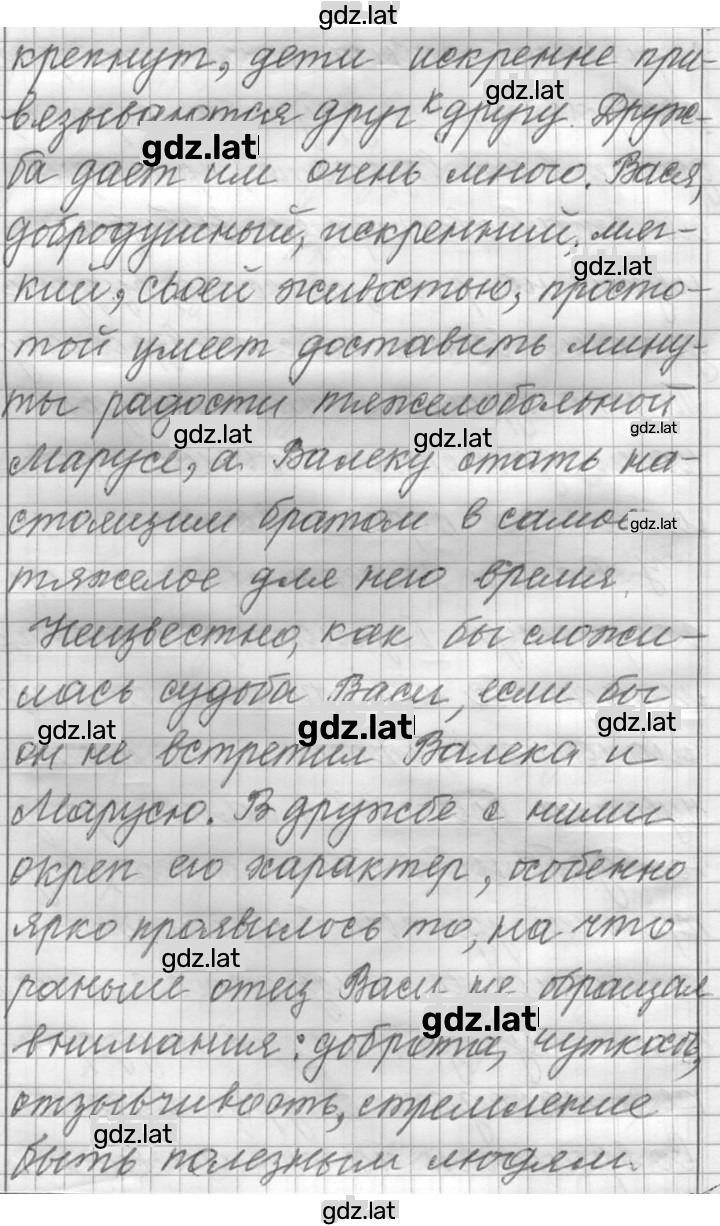 gdz.lat
крепнут, дети искренне при-
gdz.lat
вязываются друг к другу. Друж-
gdz.lat
ба дает им очень много. Вася,
добродушный, искренний, мяг-
gdz.lat
кий, своей живостью, просто-
той умеет доставить мину-
ты радости тяжелобольной
gdz.lat gdz.lat gdz.lat
Марусе, а Валеку стать на-
стоящим братом в самое
gdz.lat
тяжелое для него время.
Неизвестно, как бы сложи-
лась судьба Васи, если бы
gdz.lat gdz.lat gdz.lat
он не встретил Валека и
Марусю. В дружбе с ними
окреп его характер, особенно
ярко проявилось то, на что
gdz.lat
раньше отец Васи не обращал
gdz.lat
внимания: доброта, чуткость,
отзывчивость, стремление
gdz.lat
быть полезным людям.
gdz.lat